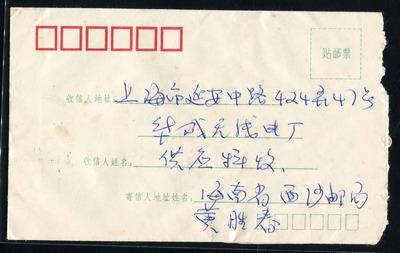 贴邮票
收信人地址:上海市延安中路424弄47号
华成无线电厂
收信人姓名:供应科收
寄信人地址姓名:海南省西沙邮局
黄胜春